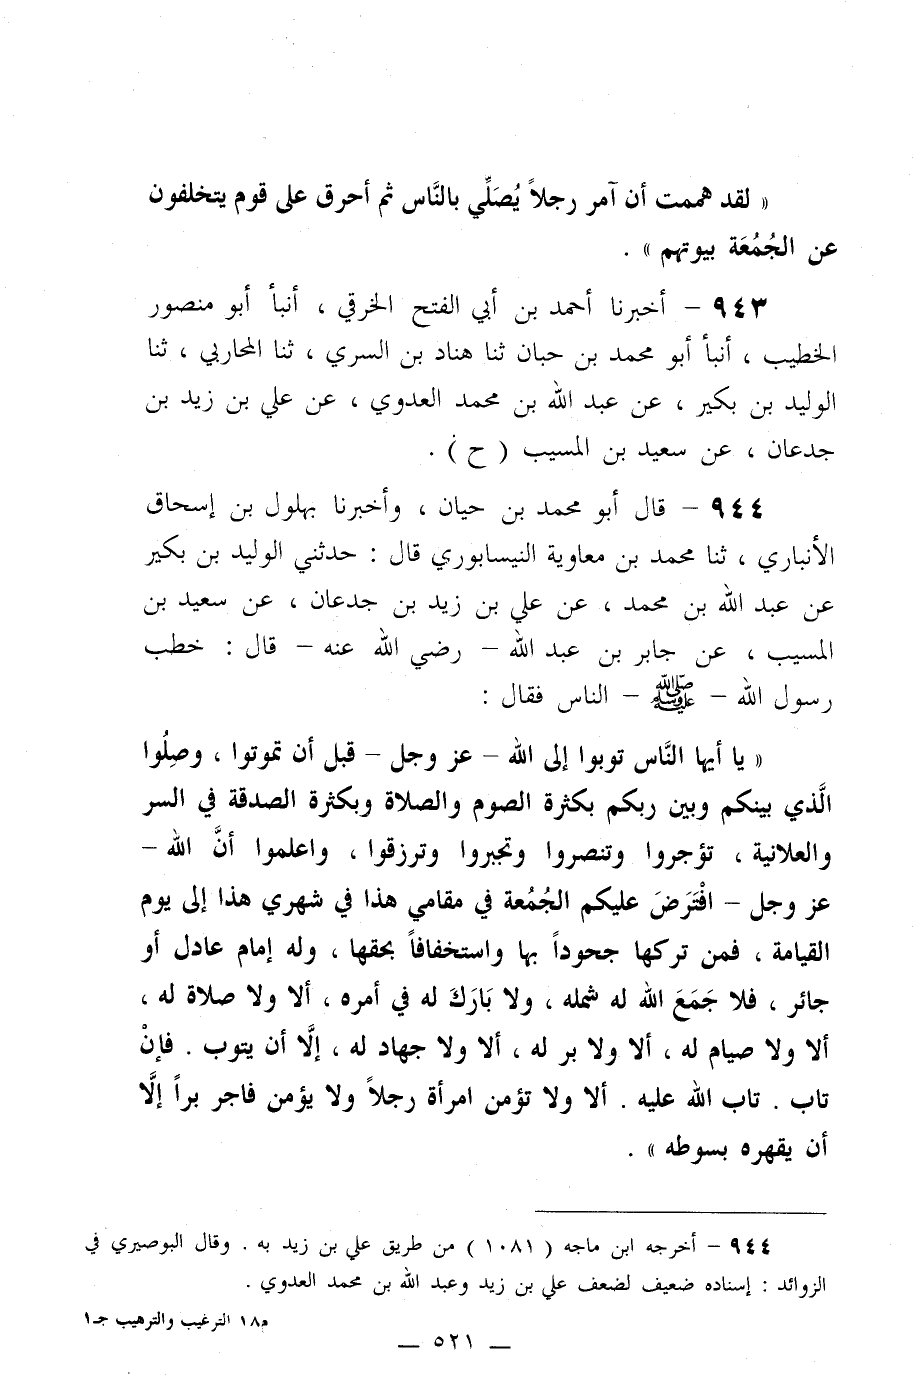 « لقد هممت أن آمر رجلاً يُصَلِّي بالنَّاس ثم أحرق على قوم يتخلفون
عن الجُمُعَة بيوتهم » .
٩٤٣ – أخبرنا أحمد بن أبي الفتح الخرقي ، أنبأ أبو منصور
الخطيب ، أنبأ أبو محمد بن حبان ثنا هناد بن السري ، ثنا المحاربي ، ثنا
الوليد بن بكير ، عن عبد الله بن محمد العدوي ، عن علي بن زيد بن
جدعان ، عن سعيد بن المسيب ( ح ) .
٩٤٤ – قال أبو محمد بن حيان ، وأخبرنا بهلول بن إسحاق
الأنباري ، ثنا محمد بن معاوية النيسابوري قال : حدثني الوليد بن بكير
عن عبد الله بن محمد ، عن علي بن زيد بن جدعان ، عن سعيد بن
المسيب ، عن جابر بن عبد الله – رضي الله عنه – قال : خطب
رسول الله – ﷺ – الناس فقال :
« يا أيها النَّاس توبوا إلى الله – عز وجل – قبل أن تموتوا ، وصِلُوا
الَّذي بينكم وبين ربكم بكثرة الصوم والصلاة وبكثرة الصدقة في السر
والعلانية ، تؤجروا وتنصروا وتجبروا وترزقوا ، واعلموا أنَّ الله –
عز وجل – افْتَرَضَ عليكم الجُمُعة في مقامي هذا في شهري هذا إلى يوم
القيامة ، فمن تركها جحوداً بها واستخفافاً بحقها ، وله إمام عادل أو
جائر ، فلا جَمَعَ الله له شمله ، ولا بَارَكَ له في أمره ، ألا ولا صلاة له ،
ألا ولا صيام له ، ألا ولا بر له ، ألا ولا جهاد له ، إلَّا أن يتوب . فإنْ
تاب . تاب الله عليه . ألا ولا تؤمن امرأة رجلاً ولا يؤمن فاجر براً إلَّا
أن يقهره بسوطه » .
٩٤٤ – أخرجه ابن ماجه ( ١٠٨١ ) من طريق علي بن زيد به . وقال البوصيري في
الزوائد : إسناده ضعيف لضعف علي بن زيد وعبد الله بن محمد العدوي .
م١٨ الترغيب والترهيب جـ١
— ٥٢١ —